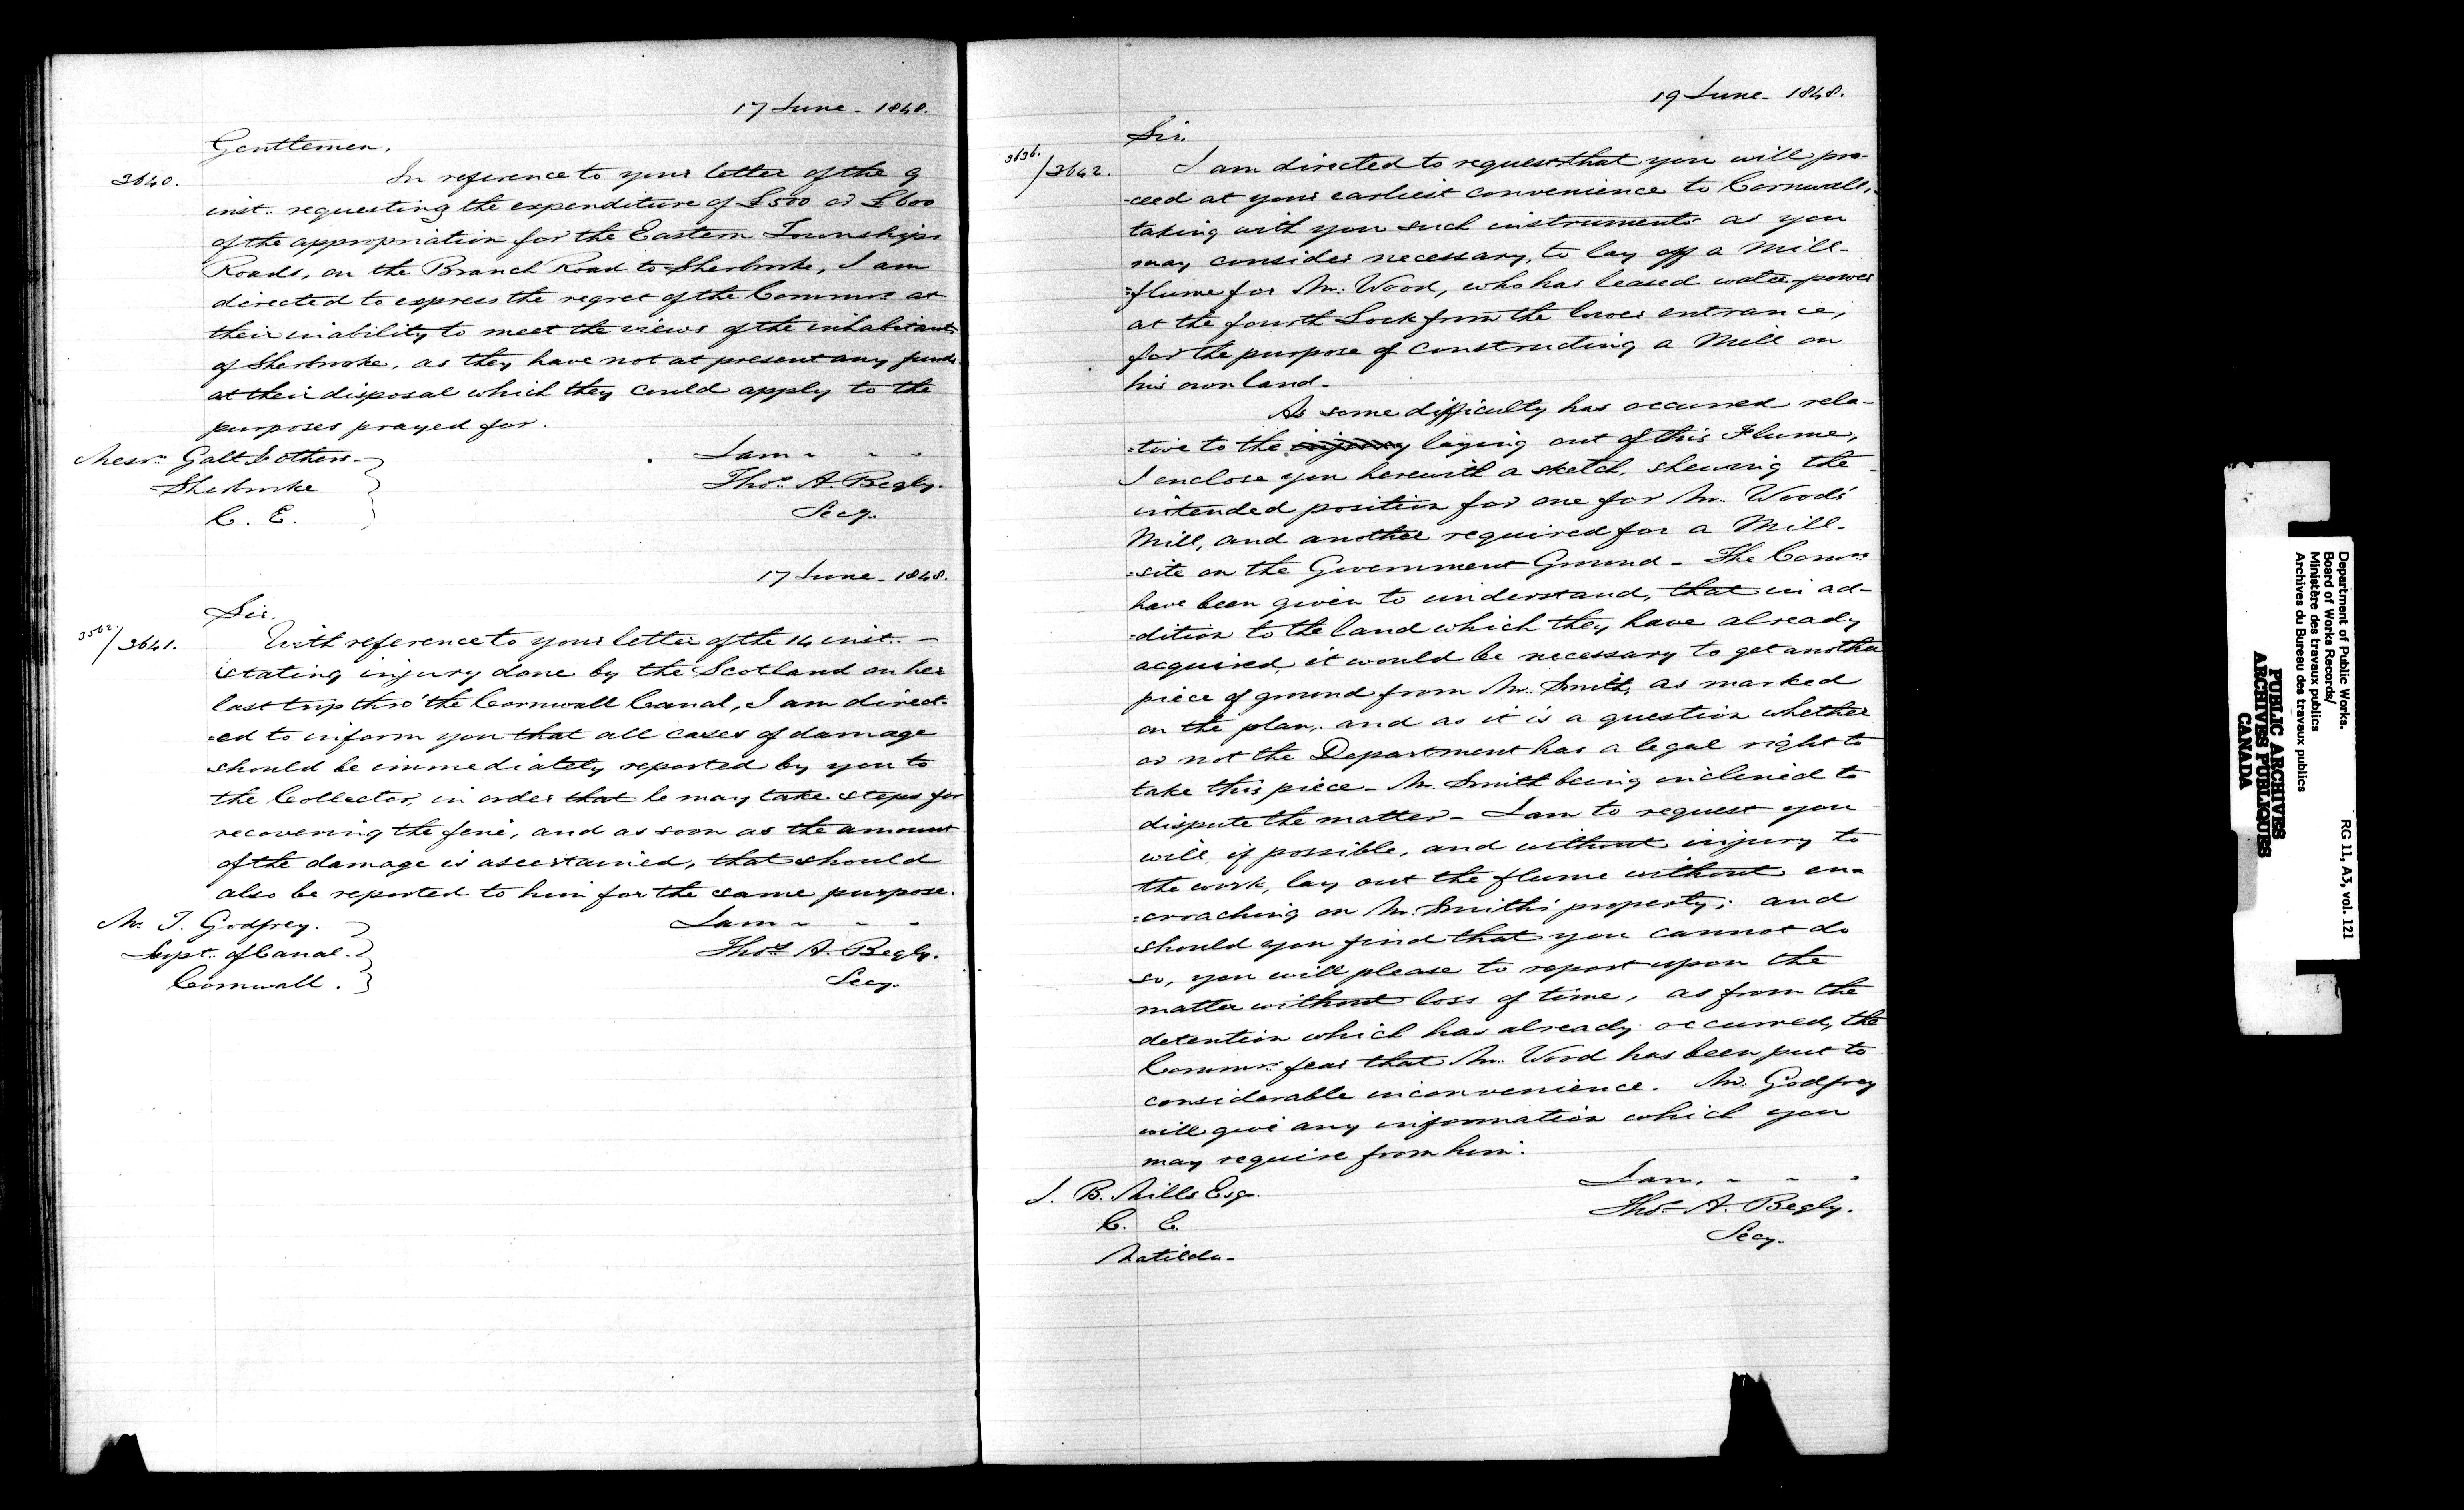 17 June - 1848.
Gentlemen,
3640.
In reference to your letter of the 9
inst. requesting the expenditure of £500 or £600
of the appropriation for the Eastern Townships
Roads, on the Branch Road to Sherbrooke, I am
directed to express the regret of the Commrs at
their inability to meet the views of the inhabitants
of Sherbrooke, as they have not at present any funds
at their disposal which they could apply to the
purposes prayed for.
Messrs Galt & others -
Sherbrooke
C. E.
I am " " "
Thos. A. Begly.
Secy.
17 June - 1848.
Sir,
3562./3641.
With reference to your letter of the 14 inst. -
stating injury done by the Scotland on her
last trip thro' the Cornwall Canal, I am direct-
-ed to inform you that all cases of damage
should be immediately reported by you to
the Collector, in order that he may take steps for
recovering the fine, and as soon as the amount
of the damage is ascertained, that should
also be reported to him for the same purpose.
Mr. T. Godfrey.
Supt. of Canal.
Cornwall.
I am " " "
Thos. A. Begly.
Secy.
19 June - 1848.
Sir.
3636./3642.
I am directed to request that you will pro-
-ceed at your earliest convenience to Cornwall,
taking with you such instruments as you
may consider necessary, to lay off a Mill-
=flume for Mr. Wood, who has leased water power
at the fourth Lock from the lower entrance,
for the purpose of constructing a Mill on
his own land.
As some difficulty has occurred rela-
-tive to the injury laying out of this Flume,
I enclose you herewith a sketch, shewing the
intended position for one for Mr. Woods'
Mill, and another required for a Mill-
=site on the Government Ground - The Commrs
have been given to understand, that in ad-
-dition to the land which they have already
acquired, it would be necessary to get another
piece of ground from Mr. Smith, as marked
on the plan, and as it is a question whether
or not the Department has a legal right to
take this piece - Mr. Smith being inclined to
dispute the matter - I am to request you
will, if possible, and without injury to
the work, lay out the flume without en-
=croaching on Mr. Smith's property; and
should you find that you cannot do
so, you will please to report upon the
matter without loss of time, as from the
detention which has already occurred, the
Commrs. fear that Mr. Wood has been put to
considerable inconvenience. Mr. Godfrey
will give any information which you
may require from him.
J. B. Mills Esqr.
C. E.
Matilda -
I am, " " "
Thos. A. Begly.
Secy.
Department of Public Works.
Board of Works Records/
Ministère des travaux publics
Archives du Bureau des travaux publics
RG 11, A3, vol. 121
PUBLIC ARCHIVES
ARCHIVES PUBLIQUES
CANADA